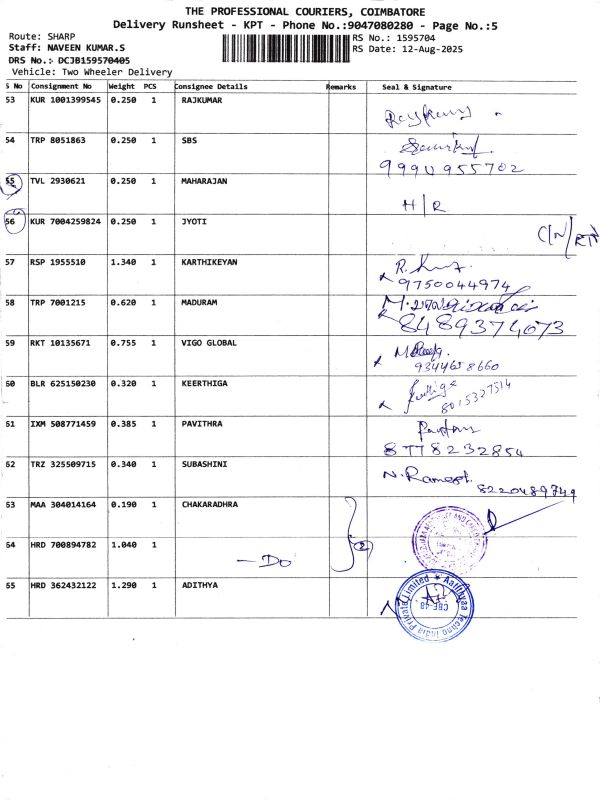 THE PROFESSIONAL COURIERS, COIMBATORE
Delivery Runsheet - KPT - Phone No.:9047080280 - Page No.:5
Route: SHARP
RS No.: 1595704
Staff: NAVEEN KUMAR.S
RS Date: 12-Aug-2025
DRS No.:- DCJB159570405
Vehicle: Two Wheeler Delivery
S No Consignment No Weight PCS Consignee Details Remarks Seal & Signature
53 KUR 1001399545 0.250 1 RAJKUMAR
54 TRP 8051863 0.250 1 SBS
9990955702
55 TVL 2930621 0.250 1 MAHARAJAN H/R
56 KUR 7004259824 0.250 1 JYOTI C/N/RTN
57 RSP 1955510 1.340 1 KARTHIKEYAN
9750044974
58 TRP 7001215 0.620 1 MADURAM
8489374073
59 RKT 10135671 0.755 1 VIGO GLOBAL
9344658660
60 BLR 625150230 0.320 1 KEERTHIGA
8015327514
61 IXM 508771459 0.385 1 PAVITHRA
8778232854
62 TRZ 325509715 0.340 1 SUBASHINI N.Ramesh
8220489749
63 MAA 304014164 0.190 1 CHAKARADHRA
64 HRD 700894782 1.040 1 - Do 2
65 HRD 362432122 1.290 1 ADITHYA
Aadithyaa Techno India Private Limited
CBE-48